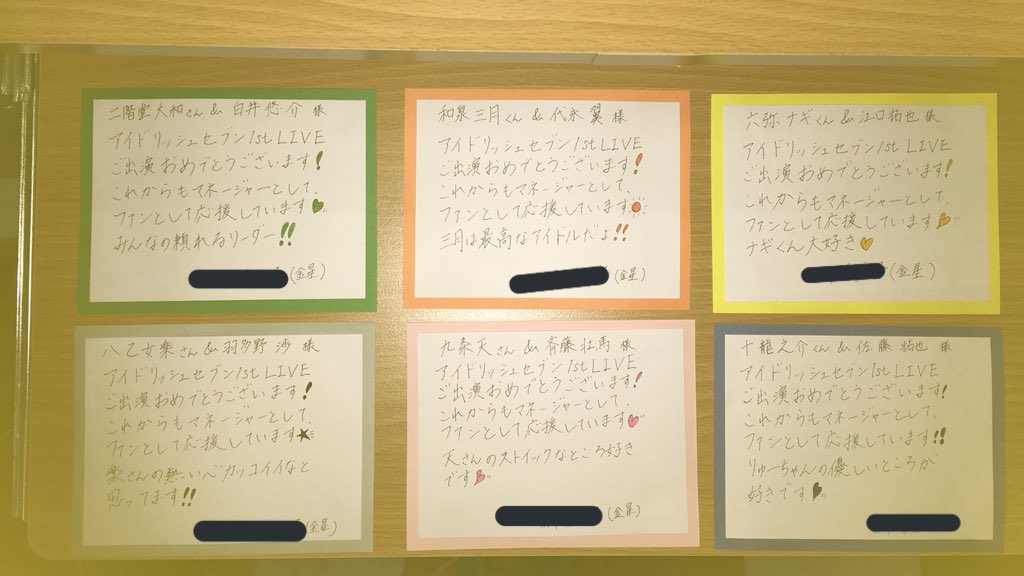 二階堂大和さん & 白井悠介 様
アイドリッシュセブン1st LIVE
ご出演おめでとうございます!
これからもマネージャーとして、
ファンとして応援しています
みんなの頼れるリーダー!!
(金星)
和泉三月くん & 代永翼 様
アイドリッシュセブン1st LIVE
ご出演おめでとうございます!
これからもマネージャーとして、
ファンとして応援しています
三月は最高なアイドルだよ!!
(金星)
六弥ナギくん & 江口拓也 様
アイドリッシュセブン1st LIVE
ご出演おめでとうございます!
これからもマネージャーとして、
ファンとして応援しています
ナギくん大好き
(金星)
八乙女楽さん & 羽多野渉 様
アイドリッシュセブン1st LIVE
ご出演おめでとうございます!
これからもマネージャーとして、
ファンとして応援しています
楽さんの熱い心カッコイイなと
思ってます!!
(金星)
九条天さん & 斉藤壮馬 様
アイドリッシュセブン1st LIVE
ご出演おめでとうございます!
これからもマネージャーとして、
ファンとして応援しています
天さんのストイックなところ好き
です
(金星)
十龍之介くん & 佐藤拓也 様
アイドリッシュセブン1st LIVE
ご出演おめでとうございます!
これからもマネージャーとして、
ファンとして応援しています!!
りゅーちゃんの優しいところが
好きです